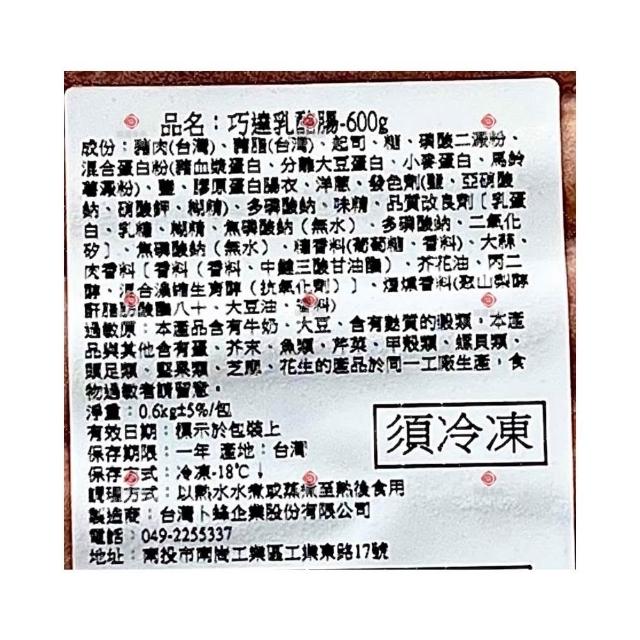 品名：巧達乳酪腸-600g
成份：豬肉(台灣)、豬脂(台灣)、起司、糖、磷酸二澱粉、
混合蛋白粉(豬血漿蛋白、分離大豆蛋白、小麥蛋白、馬鈴
薯澱粉)、鹽、膠原蛋白腸衣、洋蔥、發色劑(鹽、亞硝酸
鈉、硝酸鉀、糊精)、多磷酸鈉、味精、品質改良劑〔乳蛋
白、乳糖、糊精、焦磷酸鈉（無水）、多磷酸鈉、二氧化
矽〕、焦磷酸鈉（無水）、香料(葡萄糖、香料)、大蒜、
肉香料〔香料（香料、中鏈三酸甘油酯）、芥花油、丙二
醇、混合濃縮生育醇（抗氧化劑）〕、煙燻香料(山梨醇
酐脂肪酸酯八十、大豆油、香料)
過敏原：本產品含有牛奶、大豆、含有麩質的穀類，本產
品與其他含有蛋、芥末、魚類、芹菜、甲殼類、螺貝類、
頭足類、堅果類、芝麻、花生的產品於同一工廠生產，食
物過敏者請留意。
淨重：0.6kg±5%/包
有效日期：標示於包裝上
保存期限：一年 產地：台灣
保存方式：冷凍-18℃↓
調理方式：以熱水水煮或蒸煮至熟後食用
製造商：台灣卜蜂企業股份有限公司
電話：049-2255337
地址：南投市南崗工業區工業東路17號
須冷凍